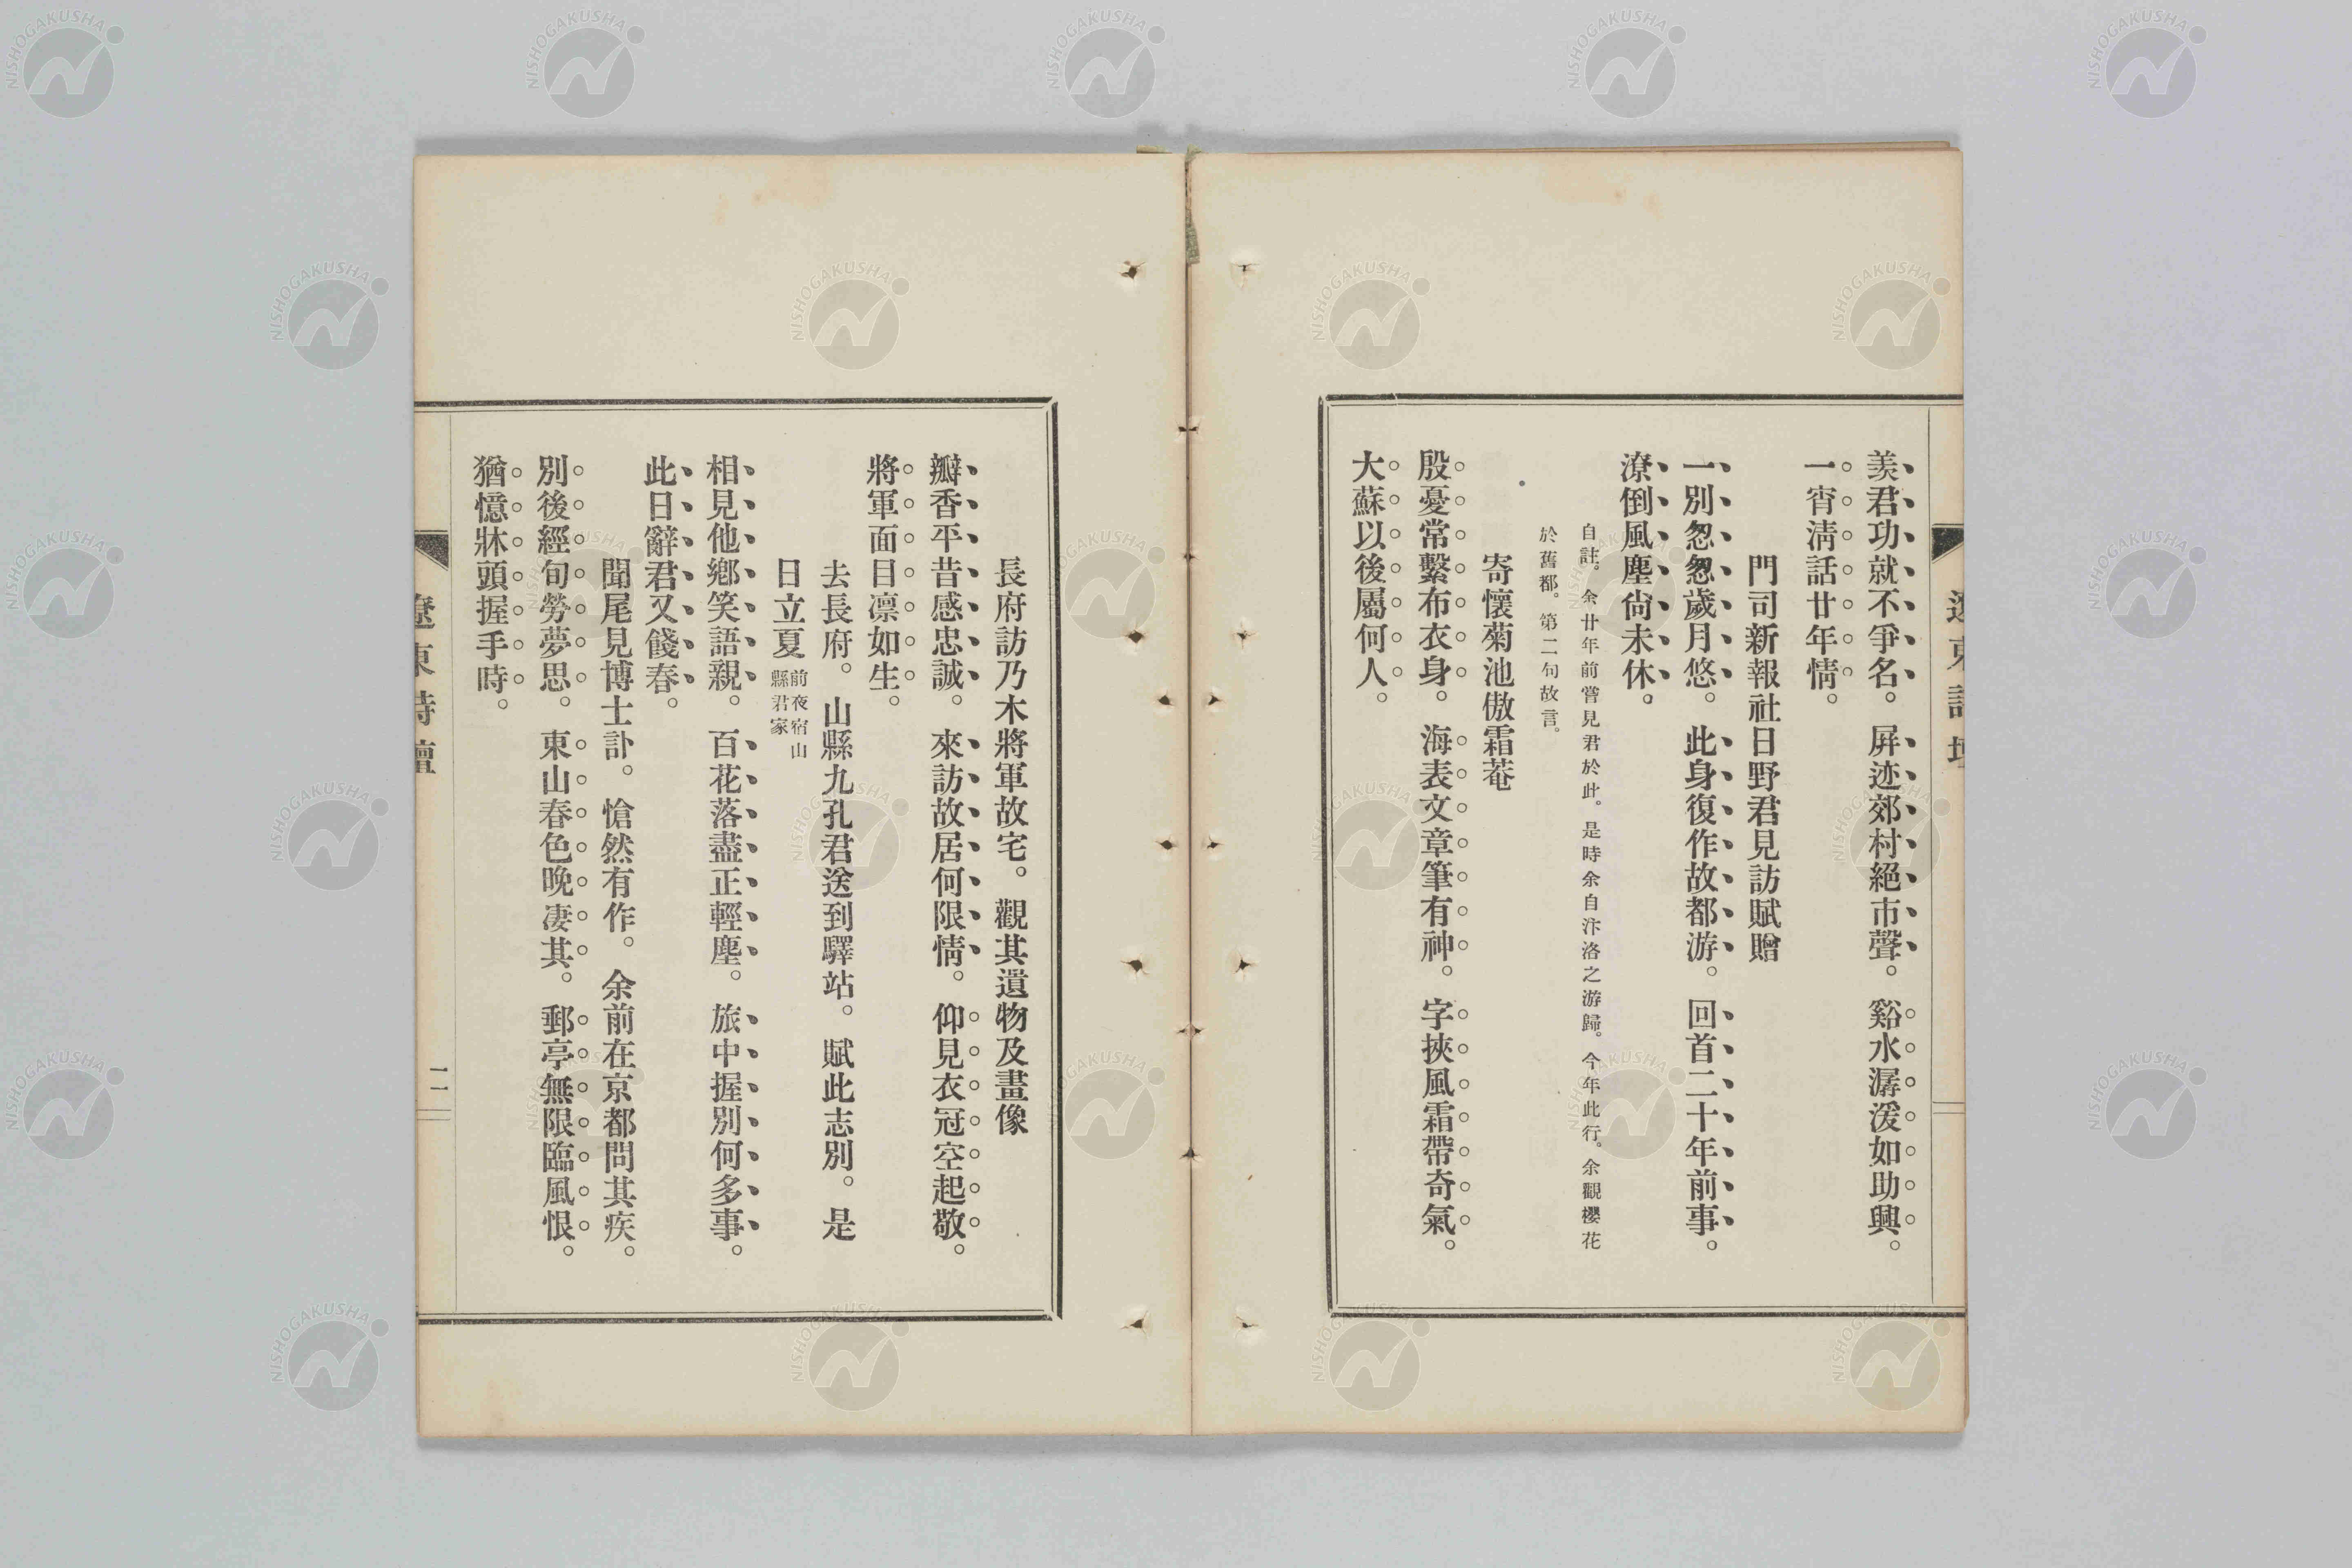 羨君功就不爭名。屛迹郊村絕市聲。谿水潺湲如助興。
一宵淸話廿年情。
門司新報社日野君見訪賦贈
一別怱怱歲月悠。此身復作故都游。回首二十年前事。
潦倒風塵尙未休。
自註。余廿年前嘗見君於此。是時余自汴洛之游歸。今年此行。余觀櫻花
於舊都。第二句故言。
寄懷菊池傲霜菴
殷憂常繫布衣身。海表文章筆有神。字挾風霜帶奇氣。
大蘇以後屬何人。
長府訪乃木將軍故宅。觀其遺物及畫像
瓣香平昔感忠誠。來訪故居何限情。仰見衣冠空起敬。
將軍面目凛如生。
去長府。山縣九孔君送到驛站。賦此志別。是
日立夏前夜宿山
縣君家
相見他鄕笑語親。百花落盡正輕塵。旅中握別何多事。
此日辭君又餞春。
聞尾見博士訃。愴然有作。余前在京都問其疾。
別後經旬勞夢思。東山春色晚凄其。郵亭無限臨風恨。
猶憶牀頭握手時。
遼東詩壇
一一
NISHOGAKUSHA